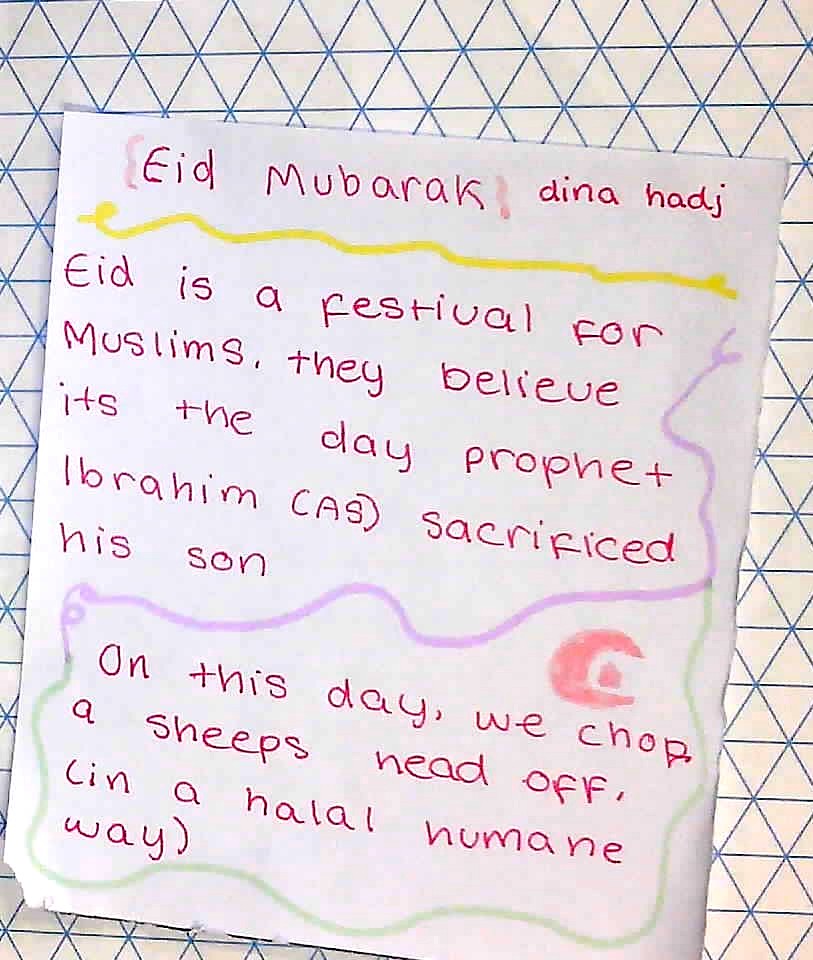 {Eid Mubarak} dina hadj
Eid is a festival for
Muslims. they believe
its the day prophet
Ibrahim (AS) sacrificed
his son
On this day, we chop
a sheeps head off.
(in a halal humane
way)